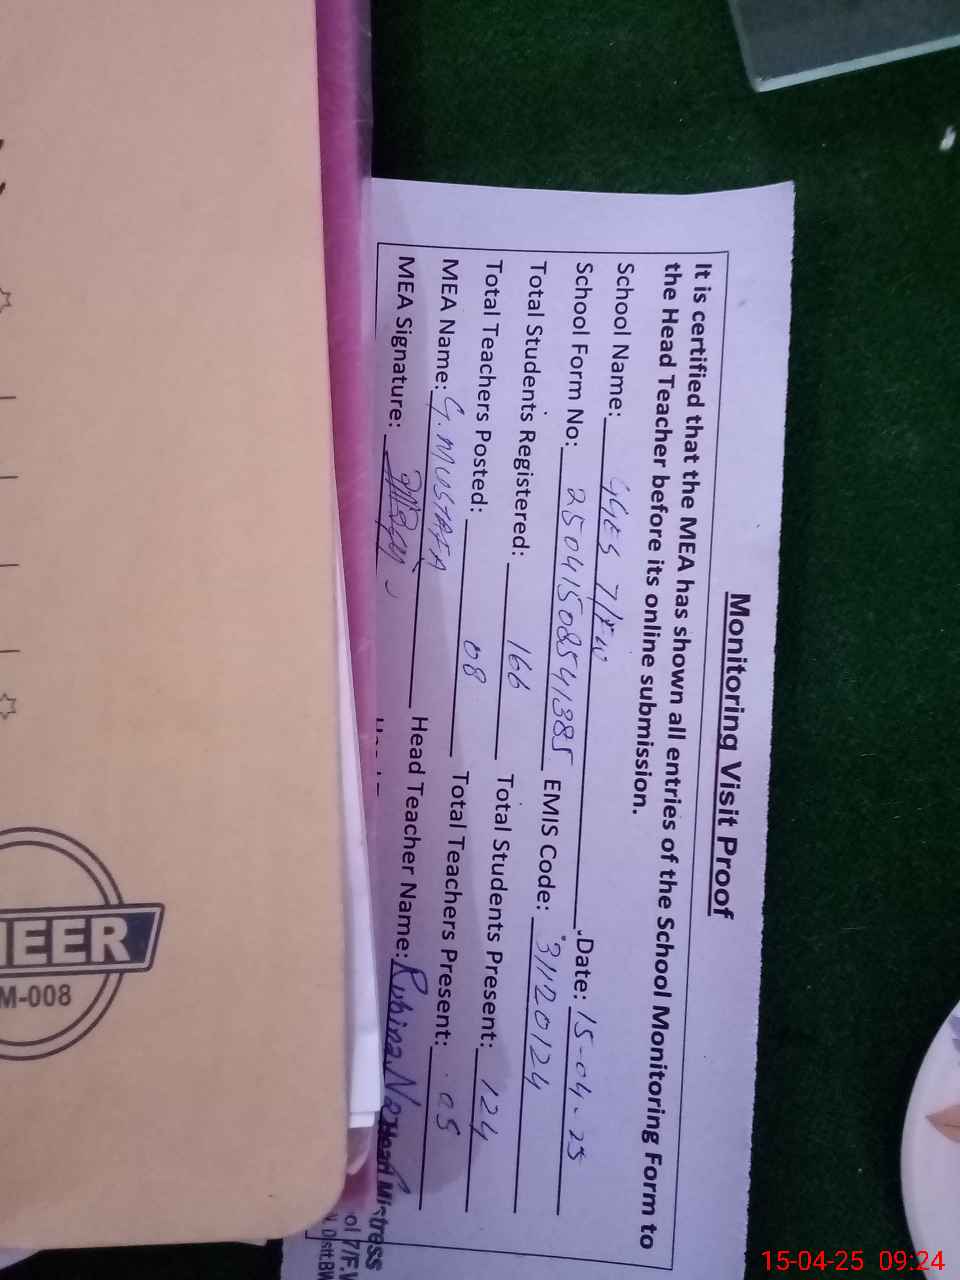 Monitoring Visit Proof
It is certified that the MEA has shown all entries of the School Monitoring Form to
the Head Teacher before its online submission.
School Name: GGES 7/FW Date: 15-04-25
School Form No: 25041508541385 EMIS Code: 31120124
Total Students Registered: 166 Total Students Present: 124
Total Teachers Posted: 08 Total Teachers Present: 05
MEA Name: G. MUSTAFA Head Teacher Name: Rubina
MEA Signature:
Head Mistress
7/F.
Distt.BW
EER
M-008
15-04-25 09:24